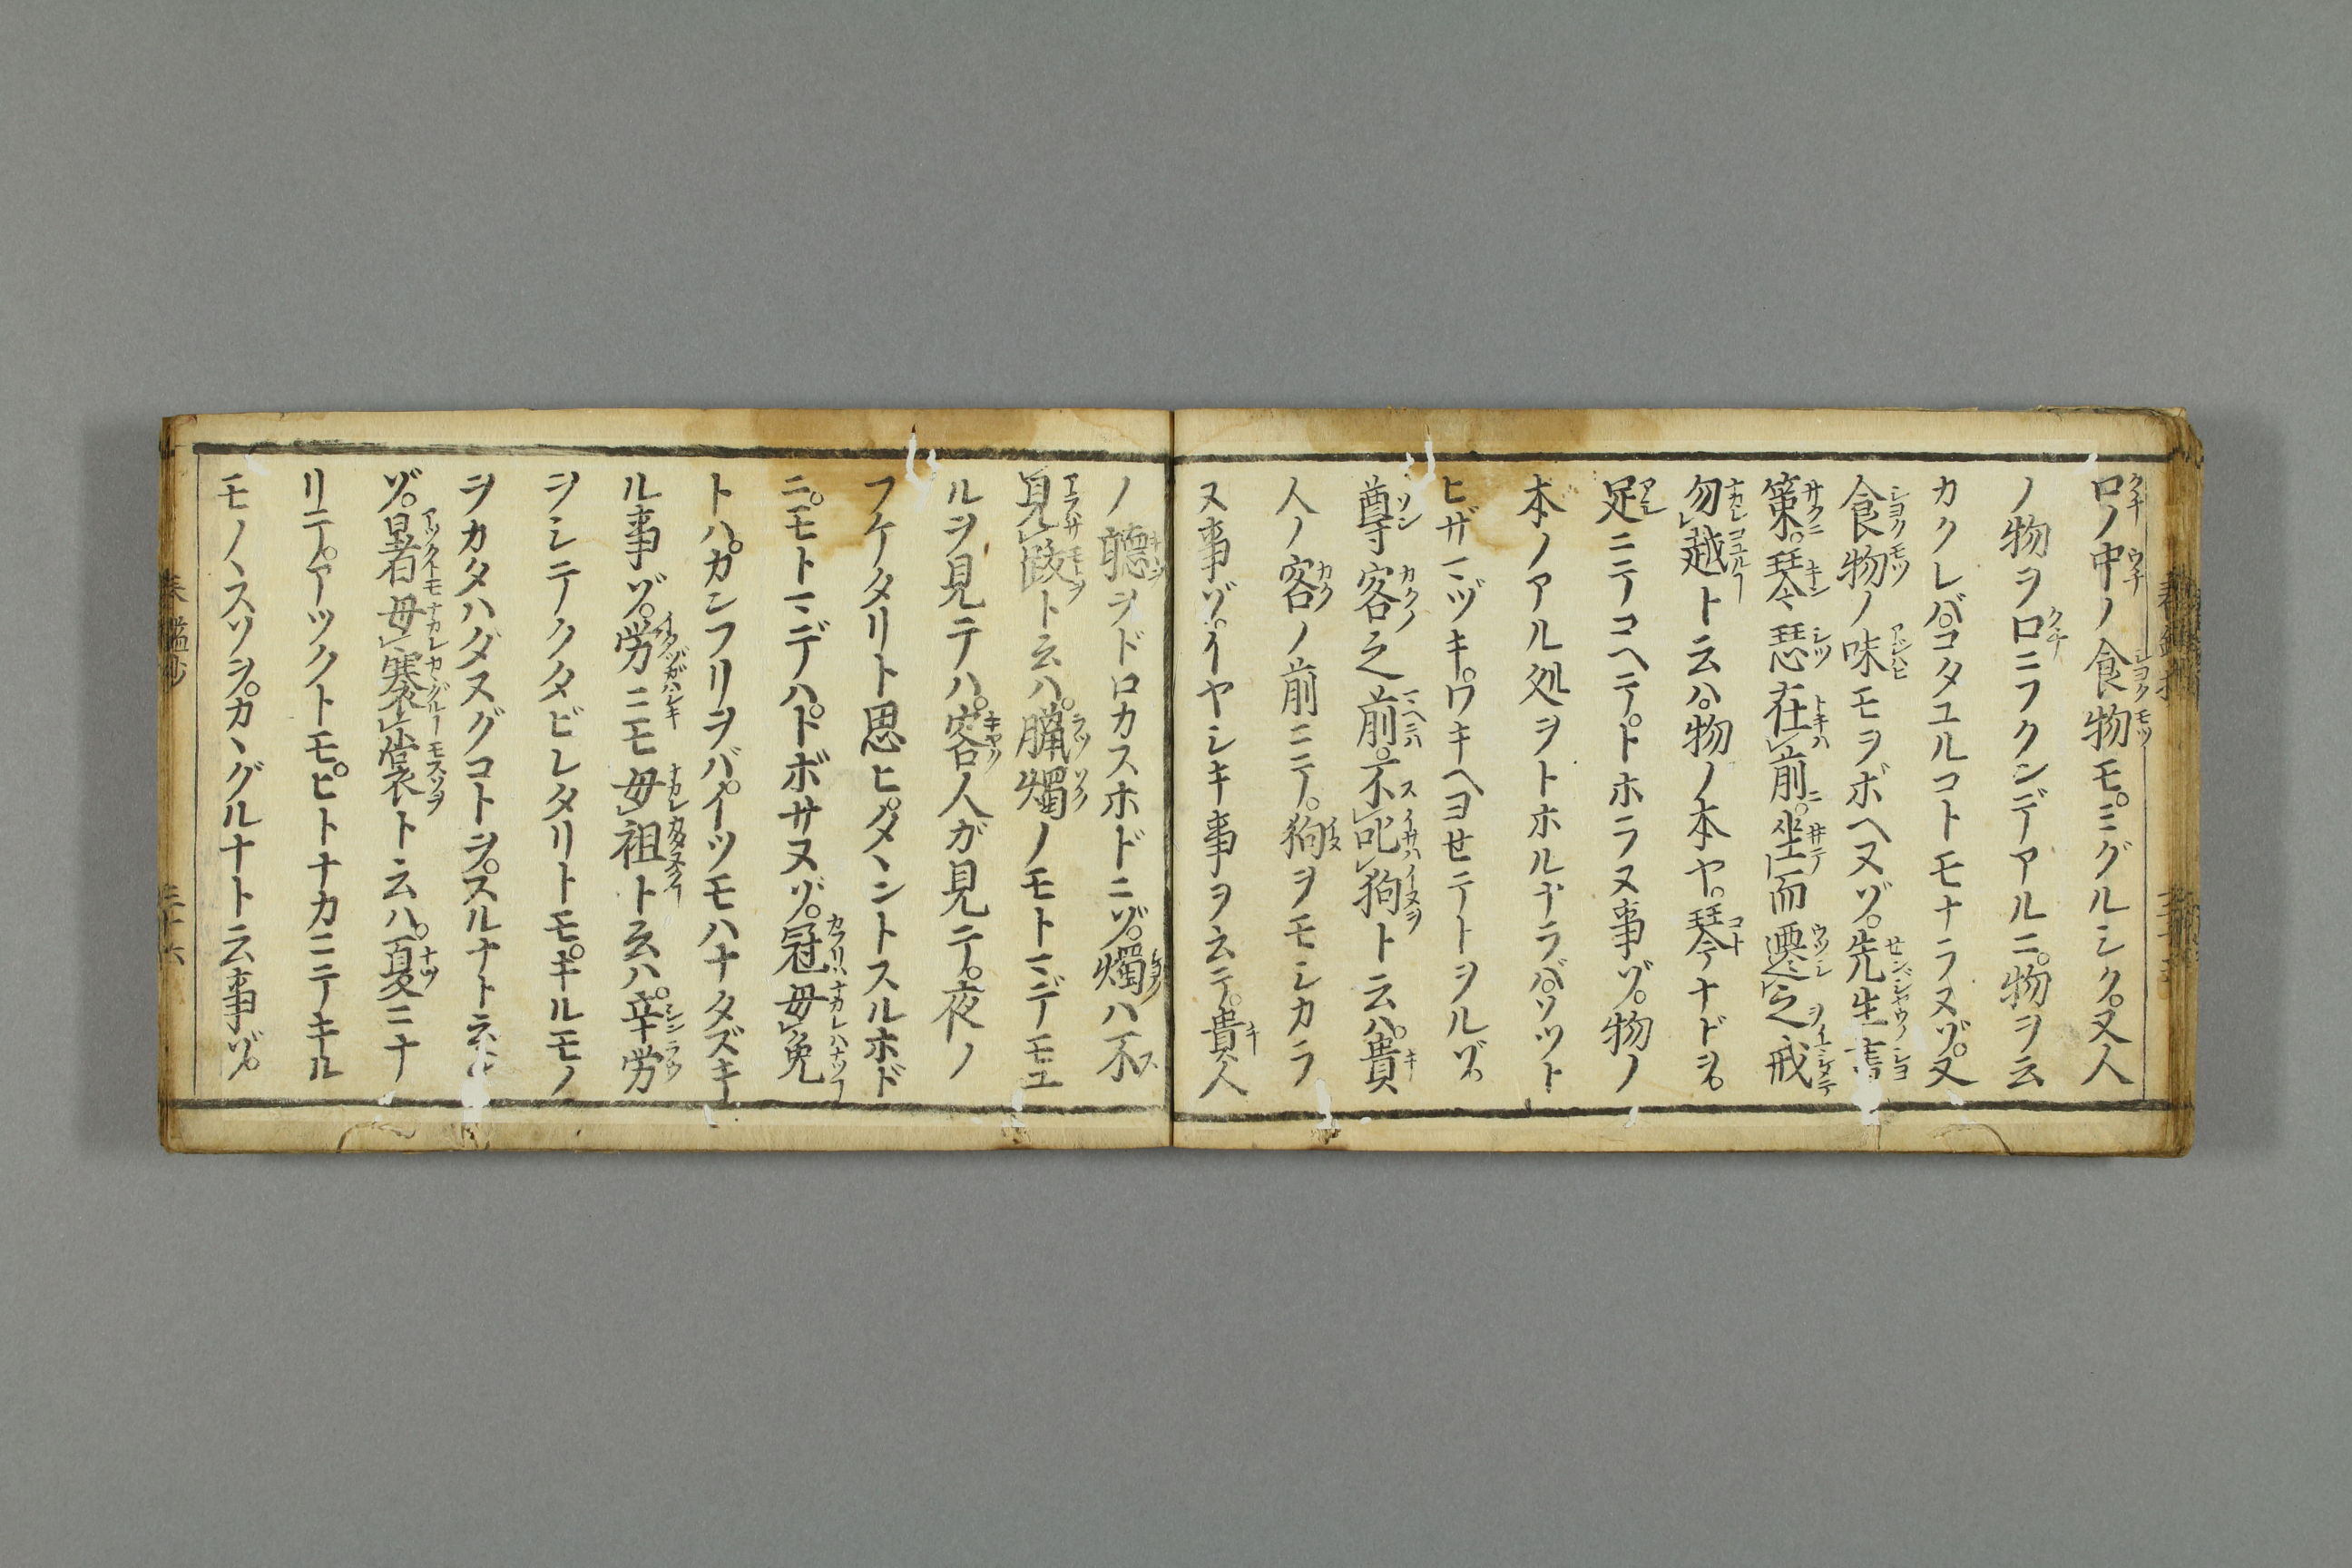 口ノ中ノ食物モ。ミグルシク。又人
ノ物ヲ口ニフクンデアルニ。物ヲ云
カクレバ。コタユルコトモナラヌゾ。又
食物ノ味モヲボヘヌゾ。先生書
策。琴瑟在前。坐而遷之戒
勿越ト云ハ。物ノ本ヤ。琴ナドヲ。
足ニテコヘテ。トホラヌ事ゾ。物ノ
本ノアル処ヲトホルナラバ。ソツト
ヒザマヅキ。ワキヘヨセテトヲルゾ。
尊客之前。不叱狗ト云ハ。貴
人ノ客ノ前ニテ。狗ヲモシカラ
ヌ事ゾ。イヤシキ事ヲ云テ。貴人
ノ聴ヲドロカスホドニゾ。燭ハ不
見跋ト云ハ。臘燭ノモトマデモエ
ルヲ見テハ。客人ガ見テ。夜ノ
フケタリト思ヒ。タヽントスルホド
ニ。モトマデハ。トボサヌゾ。冠毋免
トハ。カンフリヲバ。イツモハナタズキ
ル事ゾ。労ニモ毋袒ト云ハ。辛労
ヲシテクタビレタリトモ。キルモノ
ヲカタハダヌグコトヲ。スルナト云
ゾ。暑毋褰裳ト云ハ。夏ニナ
リテ。アツクトモ。ヒトナカニテキル
モノヽスソヲ。カヽグルナト云事ゾ。